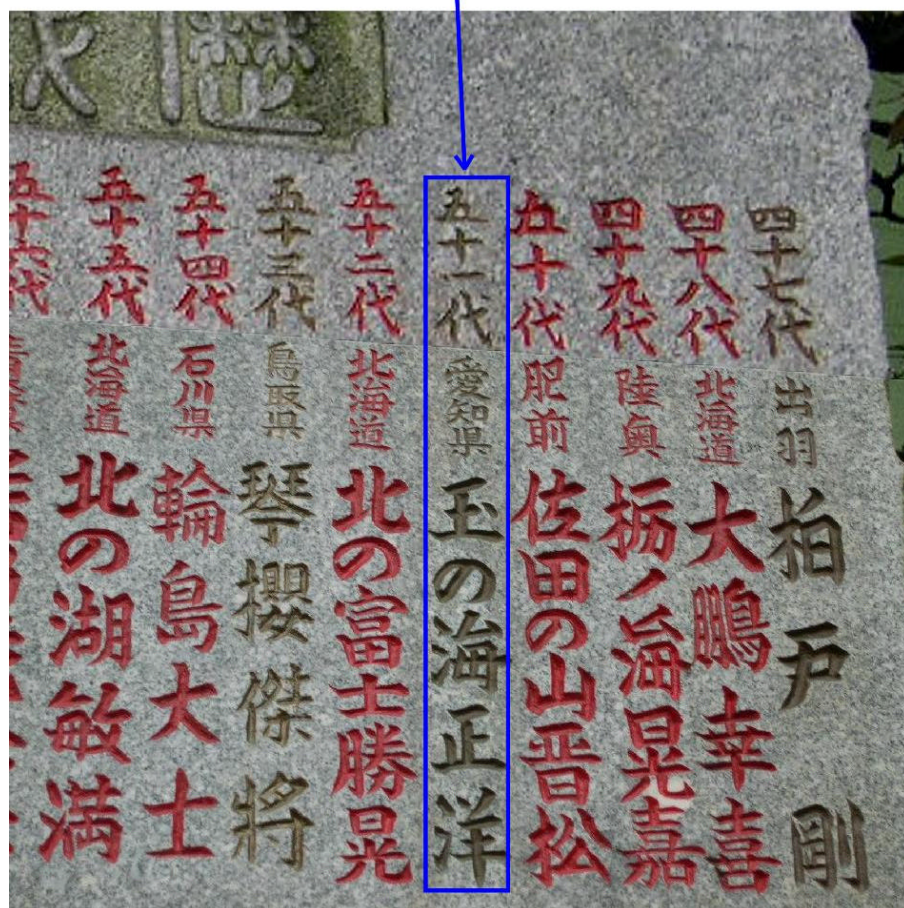 四十七代 出羽 柏戸剛
四十八代 北海道 大鵬幸喜
四十九代 陸奥 栃ノ海晃嘉
五十代 肥前 佐田の山晋松
五十一代 愛知県 玉の海正洋
五十二代 北海道 北の富士勝晃
五十三代 鳥取県 琴櫻傑將
五十四代 石川県 輪島大士
五十五代 北海道 北の湖敏満
五十六代